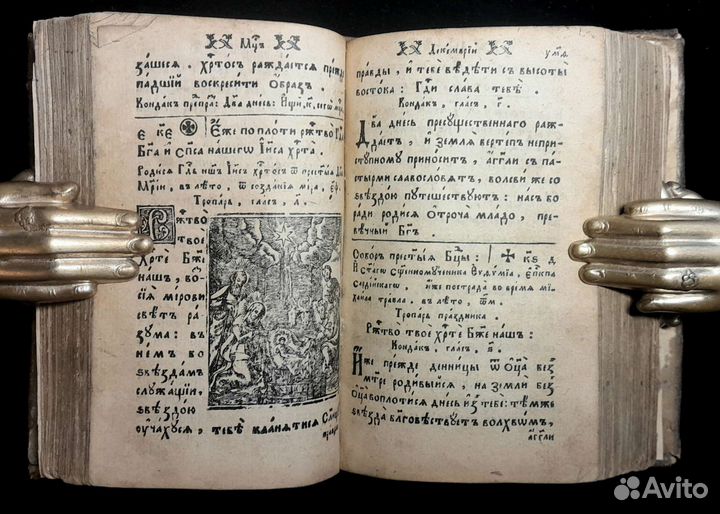 Мцъ
зашеся. хртосъ раждается прежде
падшїй воскресити ѡбразъ.
Кондакъ
Еже по плоти ржтво
Бга и Спса нашегѡ Іиса хрта.
Родися Гдь нашъ Іисъ хртосъ ѿ престыя
Марїи, въ лѣто, ѿ созданїя мїра,
Тропарь, гласъ, д.
Ржтво
твое
хрте Бже
нашъ, во-
сїя мирови
свѣтъ ра-
зума: въ
немъ бо
ѕвѣздамъ
служащїи,
ѕвѣздою
оучахуся, тебѣ кланятися
Декемврїй
правды, и тебе вѣдѣти съ высоты
востока: Гди слава тебѣ.
Кондакъ, гласъ, г.
Два днесь пресущественнаго раж-
даетъ, и земля вертепъ непри-
ступному приноситъ, аггли съ па-
стырми славословятъ, волсви же со
ѕвѣздою путешествуютъ: насъ бо
ради родися отроча младо, пре-
вѣчный Бгъ
Соборъ престыя Бцы: кѕ д
И стагѡ сщенномученика Еуѳимїа, епкпа
Сардїйскагѡ. иже пострада во время
въ лѣто,
Тропарь праздника.
Ржтво твое хрте Бже нашъ:
Кондакъ, гласъ,
Иже прежде денницы ѿ Оца без
мтре родивыйся, на земли без
Оца воплотися днесь из тебе: тѣмже
ѕвѣзда блговѣствуетъ волхвѡмъ,
аггли
Avito